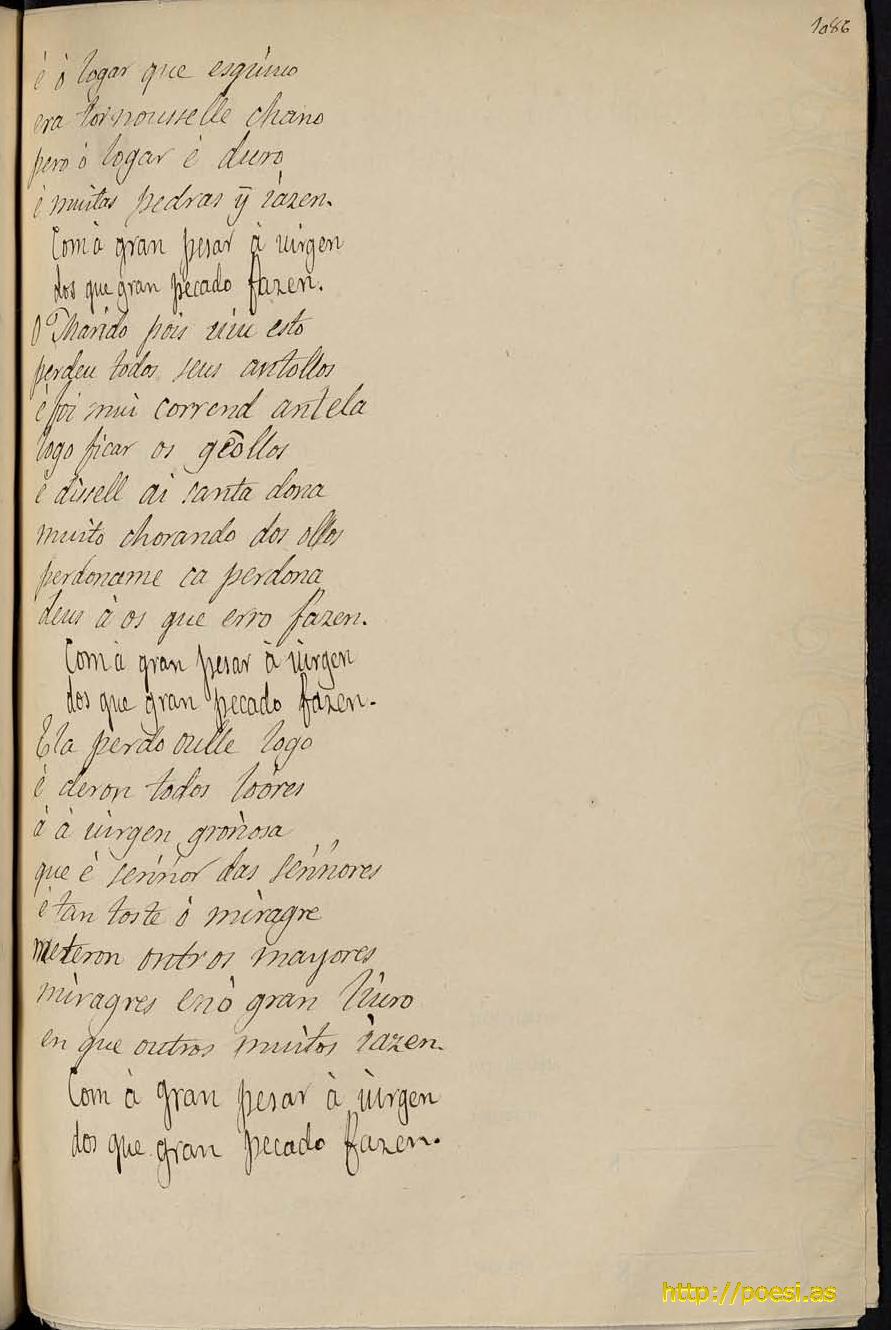 1086
é ò logar que esquiuo
era tornousselle chano
pero ò logar é duro
é muitas pedras ȳ iazen.
Com à gran pesar à uirgen
dos que gran pecado fazen.
O Marido pois uiu esto
perdeu todos seus antollos
é foi mui corrend antela
logo ficar os gẽollos
é dissell ai santa dona
muito chorando dos ollos
perdoname ca perdona
deus à os que erro fazen.
Com à gran pesar à uirgen
dos que gran pecado fazen.
Ela perdooulle logo
é deron todos loores
á à uirgen groriosa
que é sennor das sennores
é tan toste ò miragre
meteron ontr os mayores
miragres enò gran liuro
en que outros muitos iazen.
Com à gran pesar à uirgen
dos que gran pecado fazen.
http://poesi.as